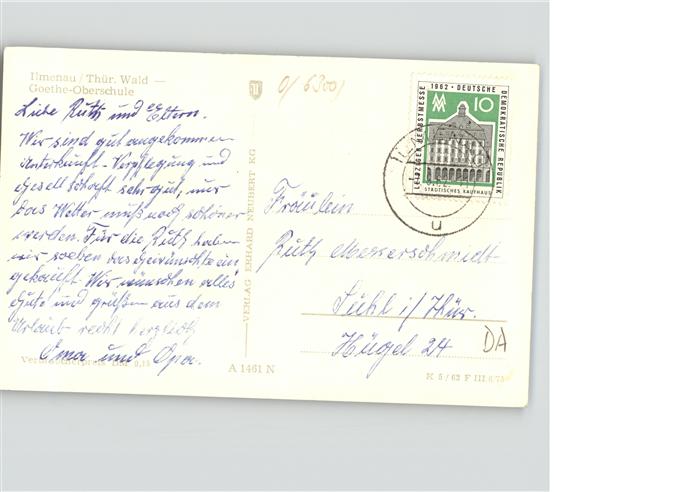 Ilmenau / Thür. Wald —
Goethe-Oberschule
Liebe Ruth und Eltern.
Wir sind gut angekommen
Unterkunft - Verpflegung und
Gesellschaft sehr gut, nur
das Wetter muß noch schöner
werden. Für die Ruth haben
wir soeben das Gewünschte ein
gekauft. Wir wünschen alles
Gute und grüßen aus dem
Urlaub recht herzlich
Oma und Opa.
Verbraucherpreis DM 0,15
VERLAG ERHARD NEUBERT KG
A 1461 N
0/6300/
LEIPZIGER HERBSTMESSE 1962 · DEUTSCHE DEMOKRATISCHE REPUBLIK
10
STÄDTISCHES KAUFHAUS
u
Fräulein
Ruth Messerschmidt
Suhl i/Thür.
Hügel 24
DA
K 5/62 F III